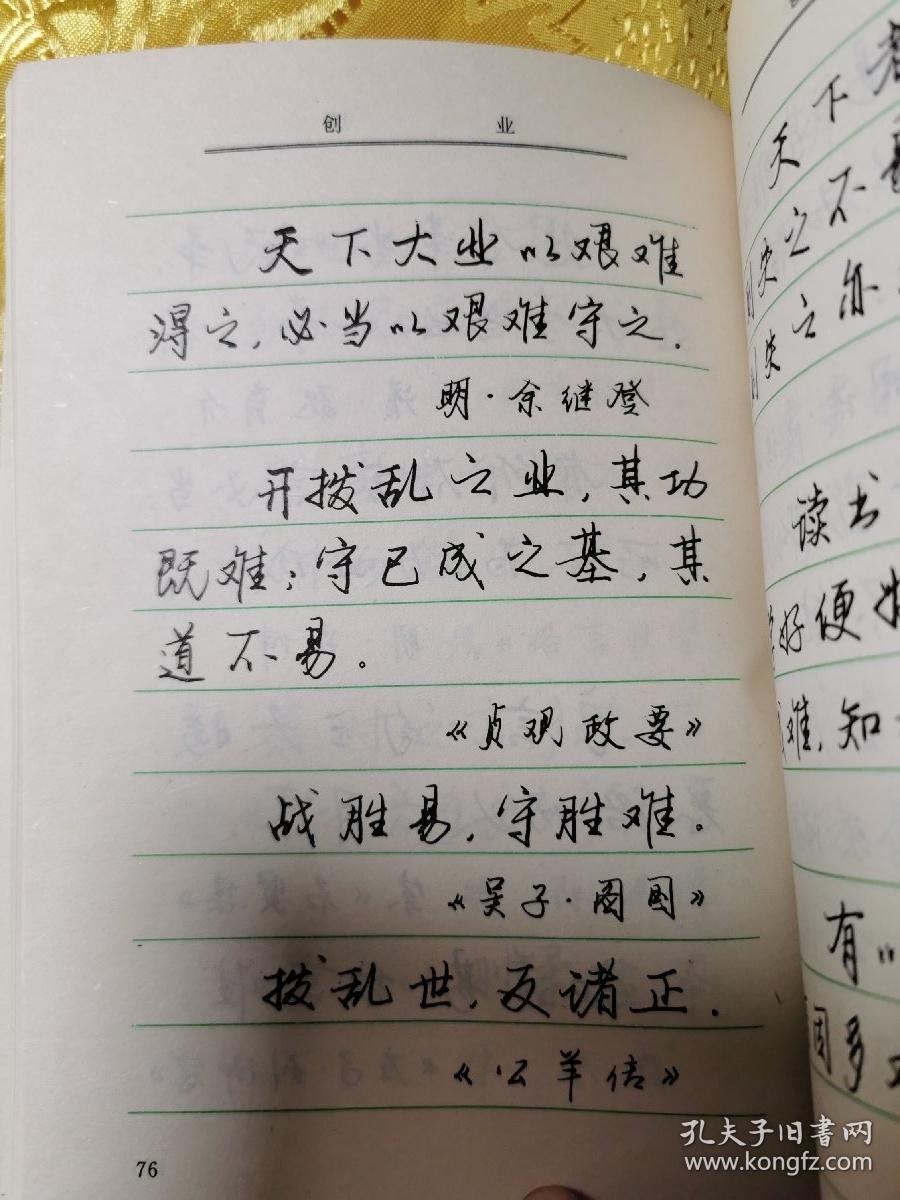 创 业
天下大业以艰难
得之,必当以艰难守之.
明·余继登
开拨乱之业,其功
既难;守已成之基,其
道不易.
《贞观政要》
战胜易,守胜难.
《吴子·图国》
拨乱世,反诸正.
《公羊传》
76
天下者
失之不
失之亦
读书
好便
难,知
有
固多
孔夫子旧书网
www.kongfz.com